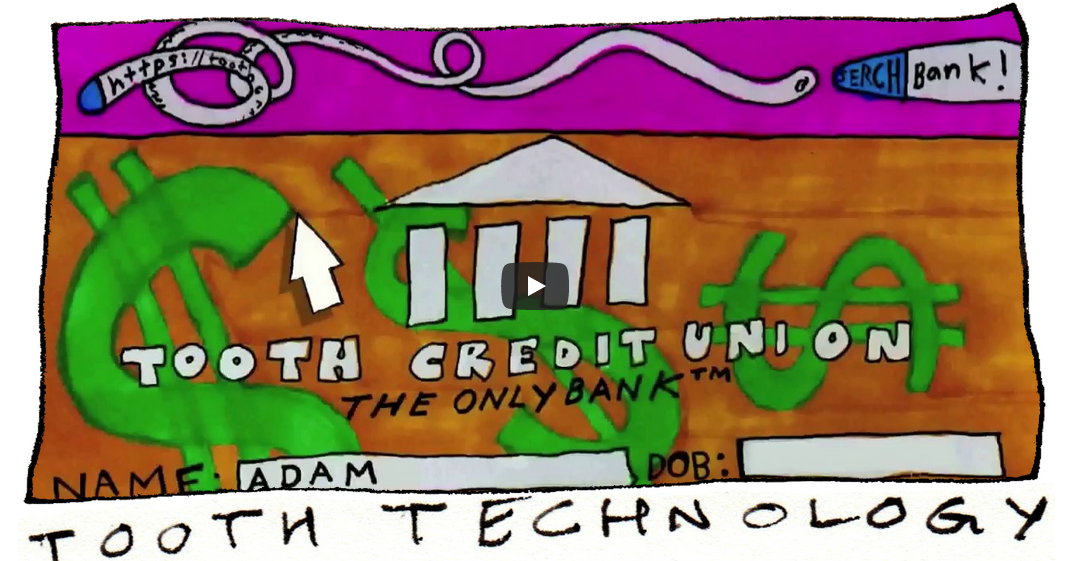 https://tooth
SERCH Bank!
TOOTH CREDIT UNION
THE ONLY BANK™
NAME: ADAM
DOB:
TOOTH TECHNOLOGY